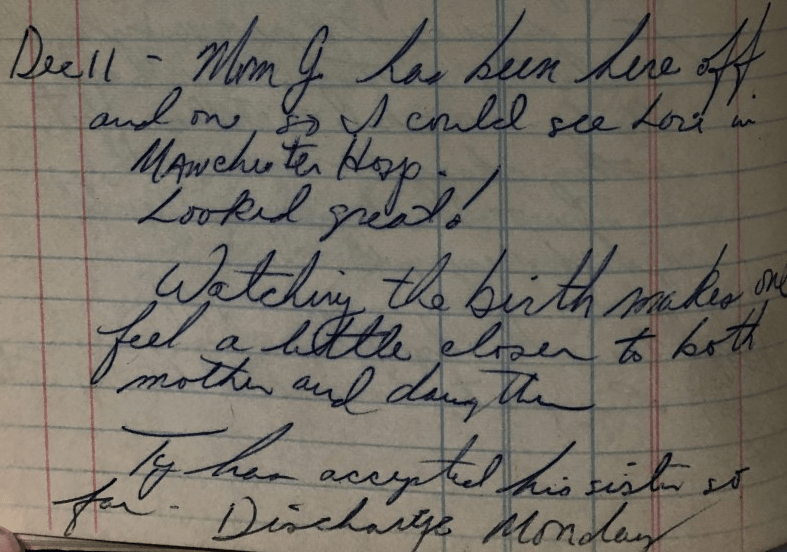 Dec 11 - Mom G has been here off
and on so I could see Lori in
Manchester Hosp.
Looked great!
Watching the birth makes one
feel a little closer to both
mother and daughter
Ty has accepted his sister so
far. Discharge Monday